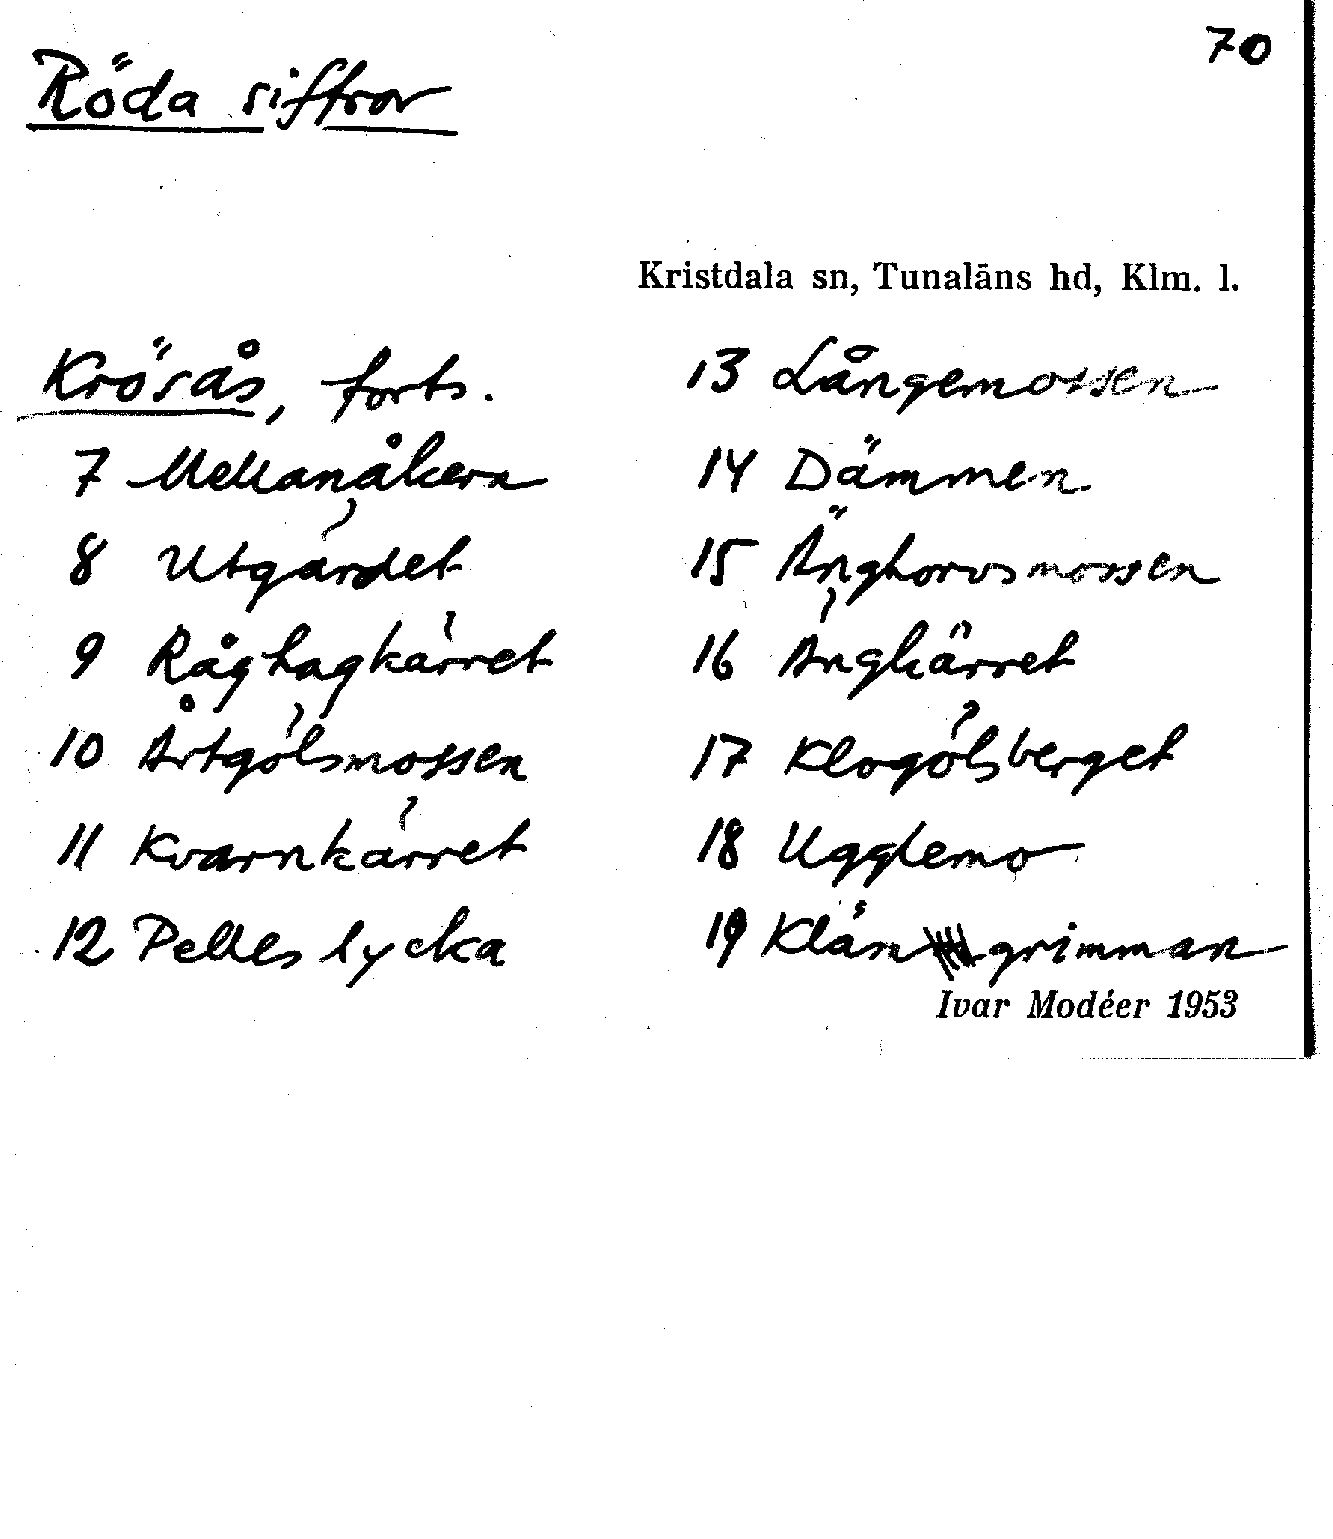 70
Röda siffror
Kristdala sn, Tunaläns hd, Klm. l.
Krösås, forts.
7 Mellanåkern
8 Utgärdet
9 Råghagkärret
10 Årtgölsmossen
11 Kvarnkärret
12 Pelles lycka
13 Långemossen
14 Dämmen
15 Änghorvsmossen
16 Ängkärret
17 Klogölsberget
18 Ugglemo
19 Klån grimman
Ivar Modéer 1953